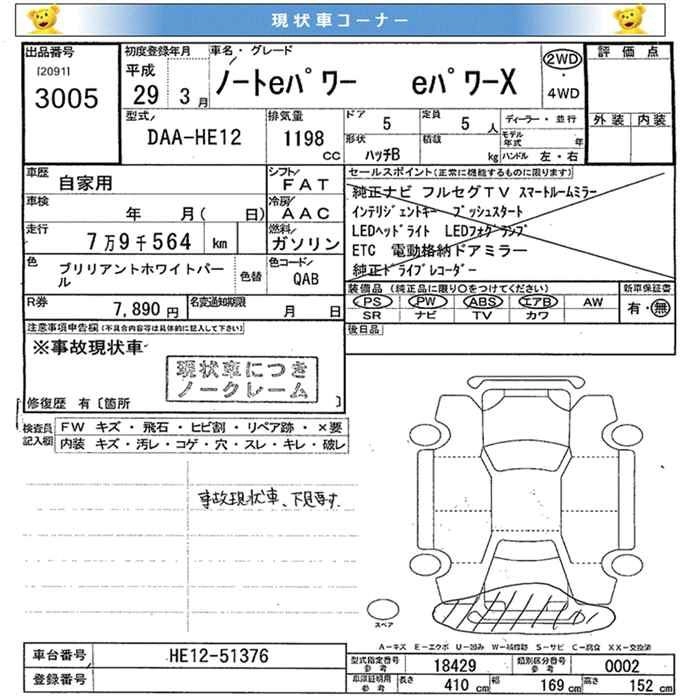 現状車コーナー
出品番号 初度登録年月 車名・グレード 評価点
[2091] 平成 ノートeパワー eパワーX 2WD
3005 29 3月 ・4WD
型式 排気量 ドア 定員 ディーラー・並行 外装 内装
DAA-HE12 1198 cc 5 5人 モデル年式 年
形状 ハッチB 積載 kg ハンドル 左・右
車歴 自家用 シフト FAT セールスポイント(正常に機能するものに限ります)
車検 年 月( 日) 冷房 AAC 純正ナビ フルセグTV スマートルームミラー
走行 7万9千564 km 燃料 ガソリン インテリジェントキー プッシュスタート
LEDヘッドライト LEDフォグランプ
ETC 電動格納ドアミラー
純正ドライブレコーダー
色 ブリリアントホワイトパール 色替 色コード QAB
装備品(純正品に限り○をつけてください) 新車保証書
R券 7,890円 名変通知期限 月 日 PS PW ABS エアB AW 有・無
SR ナビ TV カワ
注意事項申告欄(不具合内容等は具体的に記入して下さい) 後日品
※事故現状車
現状車につき
ノークレーム
修復歴 有〔箇所 〕
検査員記入欄 FW キズ・飛石・ヒビ割・リペア跡・×要
内装 キズ・汚レ・コゲ・穴・スレ・キレ・破レ
事故現状車、下見要す.
スペア
A-キズ E-エクボ U-凹み W-補修跡 S-サビ C-腐食 XX-交換済
車台番号 HE12-51376 型式指定番号参考 18429 類別区分番号参考 0002
登録番号 車庫証明用参考 長さ 410 cm 幅 169 cm 高さ 152 cm